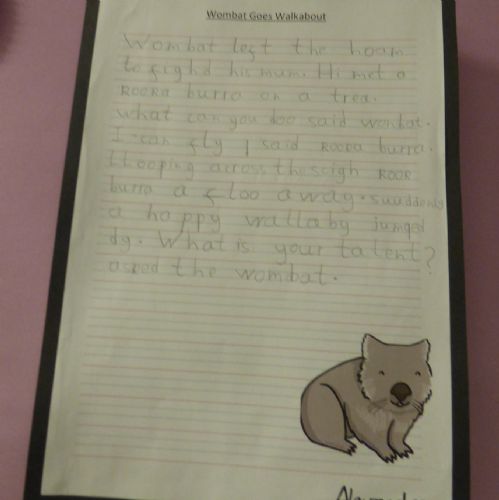 Wombat Goes Walkabout
Wombat left the hoam
to fighd his mum. Hi met a
Roora burra on a trea.
What can you doo said wombat.
I can fly I said Roora burra.
across the seigh Roor
burra a floo away. suaddenly
a happy wallaby jumped
dy. What is your talent?
asred the wombat.